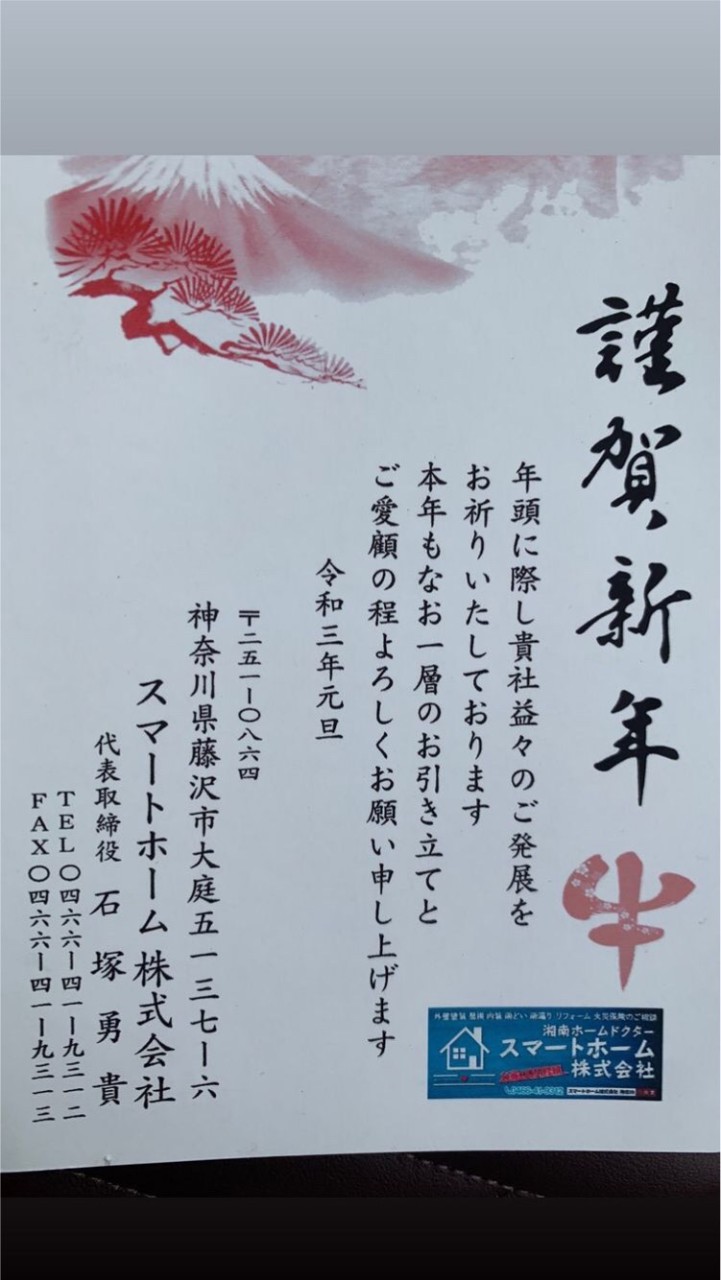 謹賀新年
牛
年頭に際し貴社益々のご発展を
お祈りいたしております
本年もなお一層のお引き立てと
ご愛顧の程よろしくお願い申し上げます
令和三年元旦
〒二五一ー〇八六四
神奈川県藤沢市大庭五一三七ー六
スマートホーム株式会社
代表取締役 石塚勇貴
TEL〇四六六ー四一ー九三一二
FAX〇四六六ー四一ー九三一三
外壁塗装 屋根 内装 雨どい 雨漏り リフォーム 火災保険のご相談
湘南ホームドクター
スマートホーム
株式会社
0466-41-9312